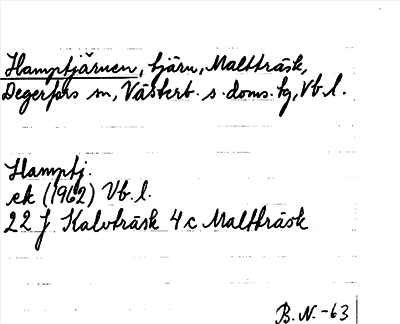 Hamptjärnen, tjärn, Maltträsk,
Degerfors sn, Västerb. s. doms. tg, Vb. l.
Hamptj.
ek (1962) Vb. l.
22 J Kalvträsk 4 c Maltträsk
B. N. -63